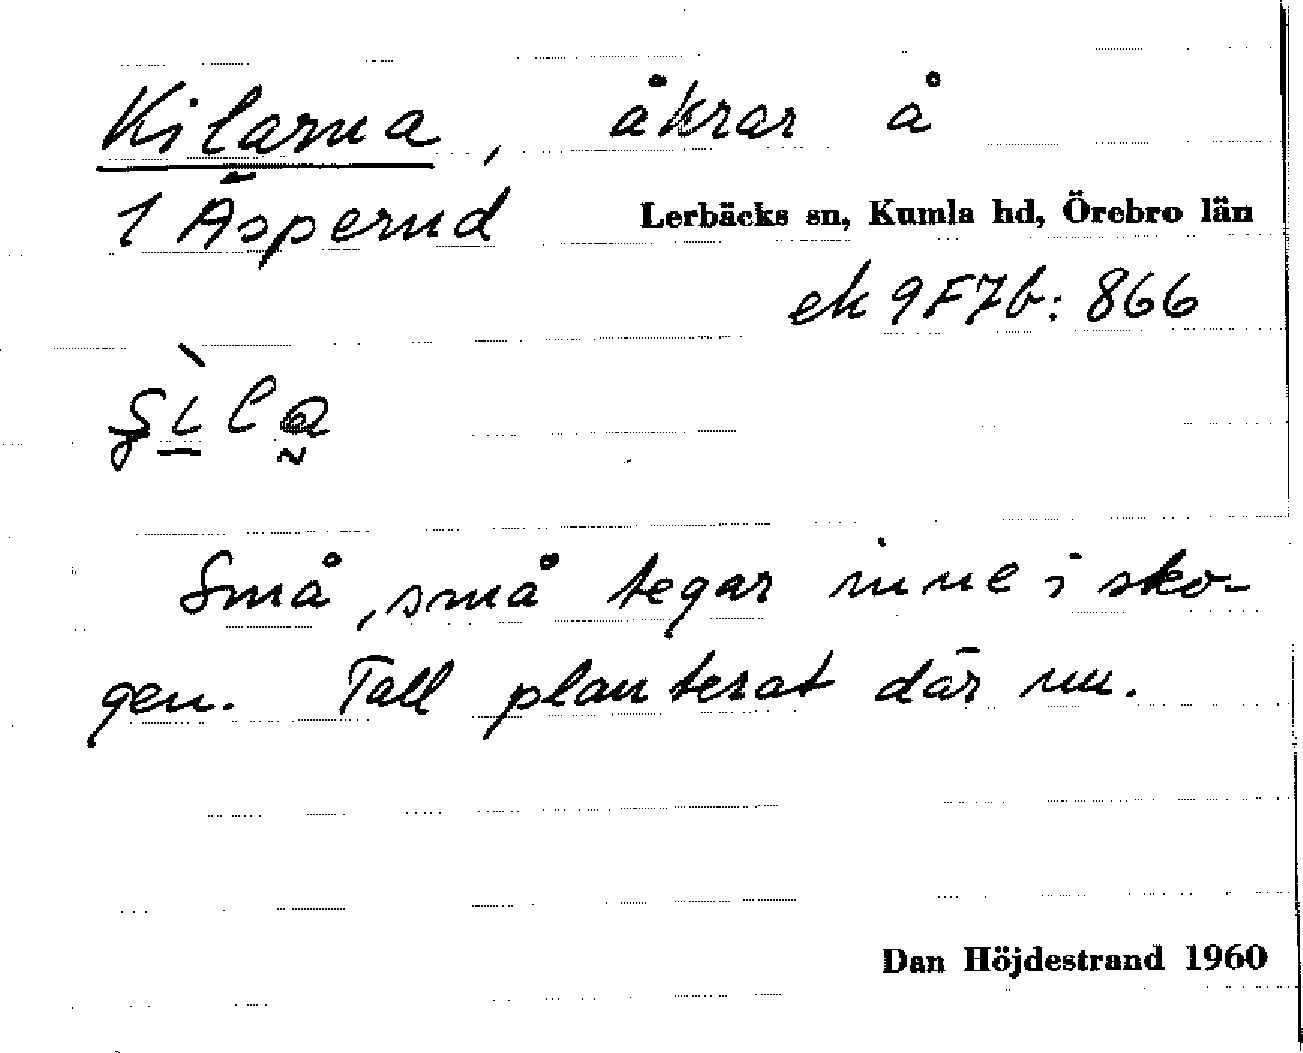 Kilarna, åkrar å
1 Äspernd
Lerbäcks sn, Kumla hd, Örebro län
ek 9F7b: 866
Små, små tegar inne i sko-
gen. Tall planterat där nu.
Dan Höjdestrand 1960